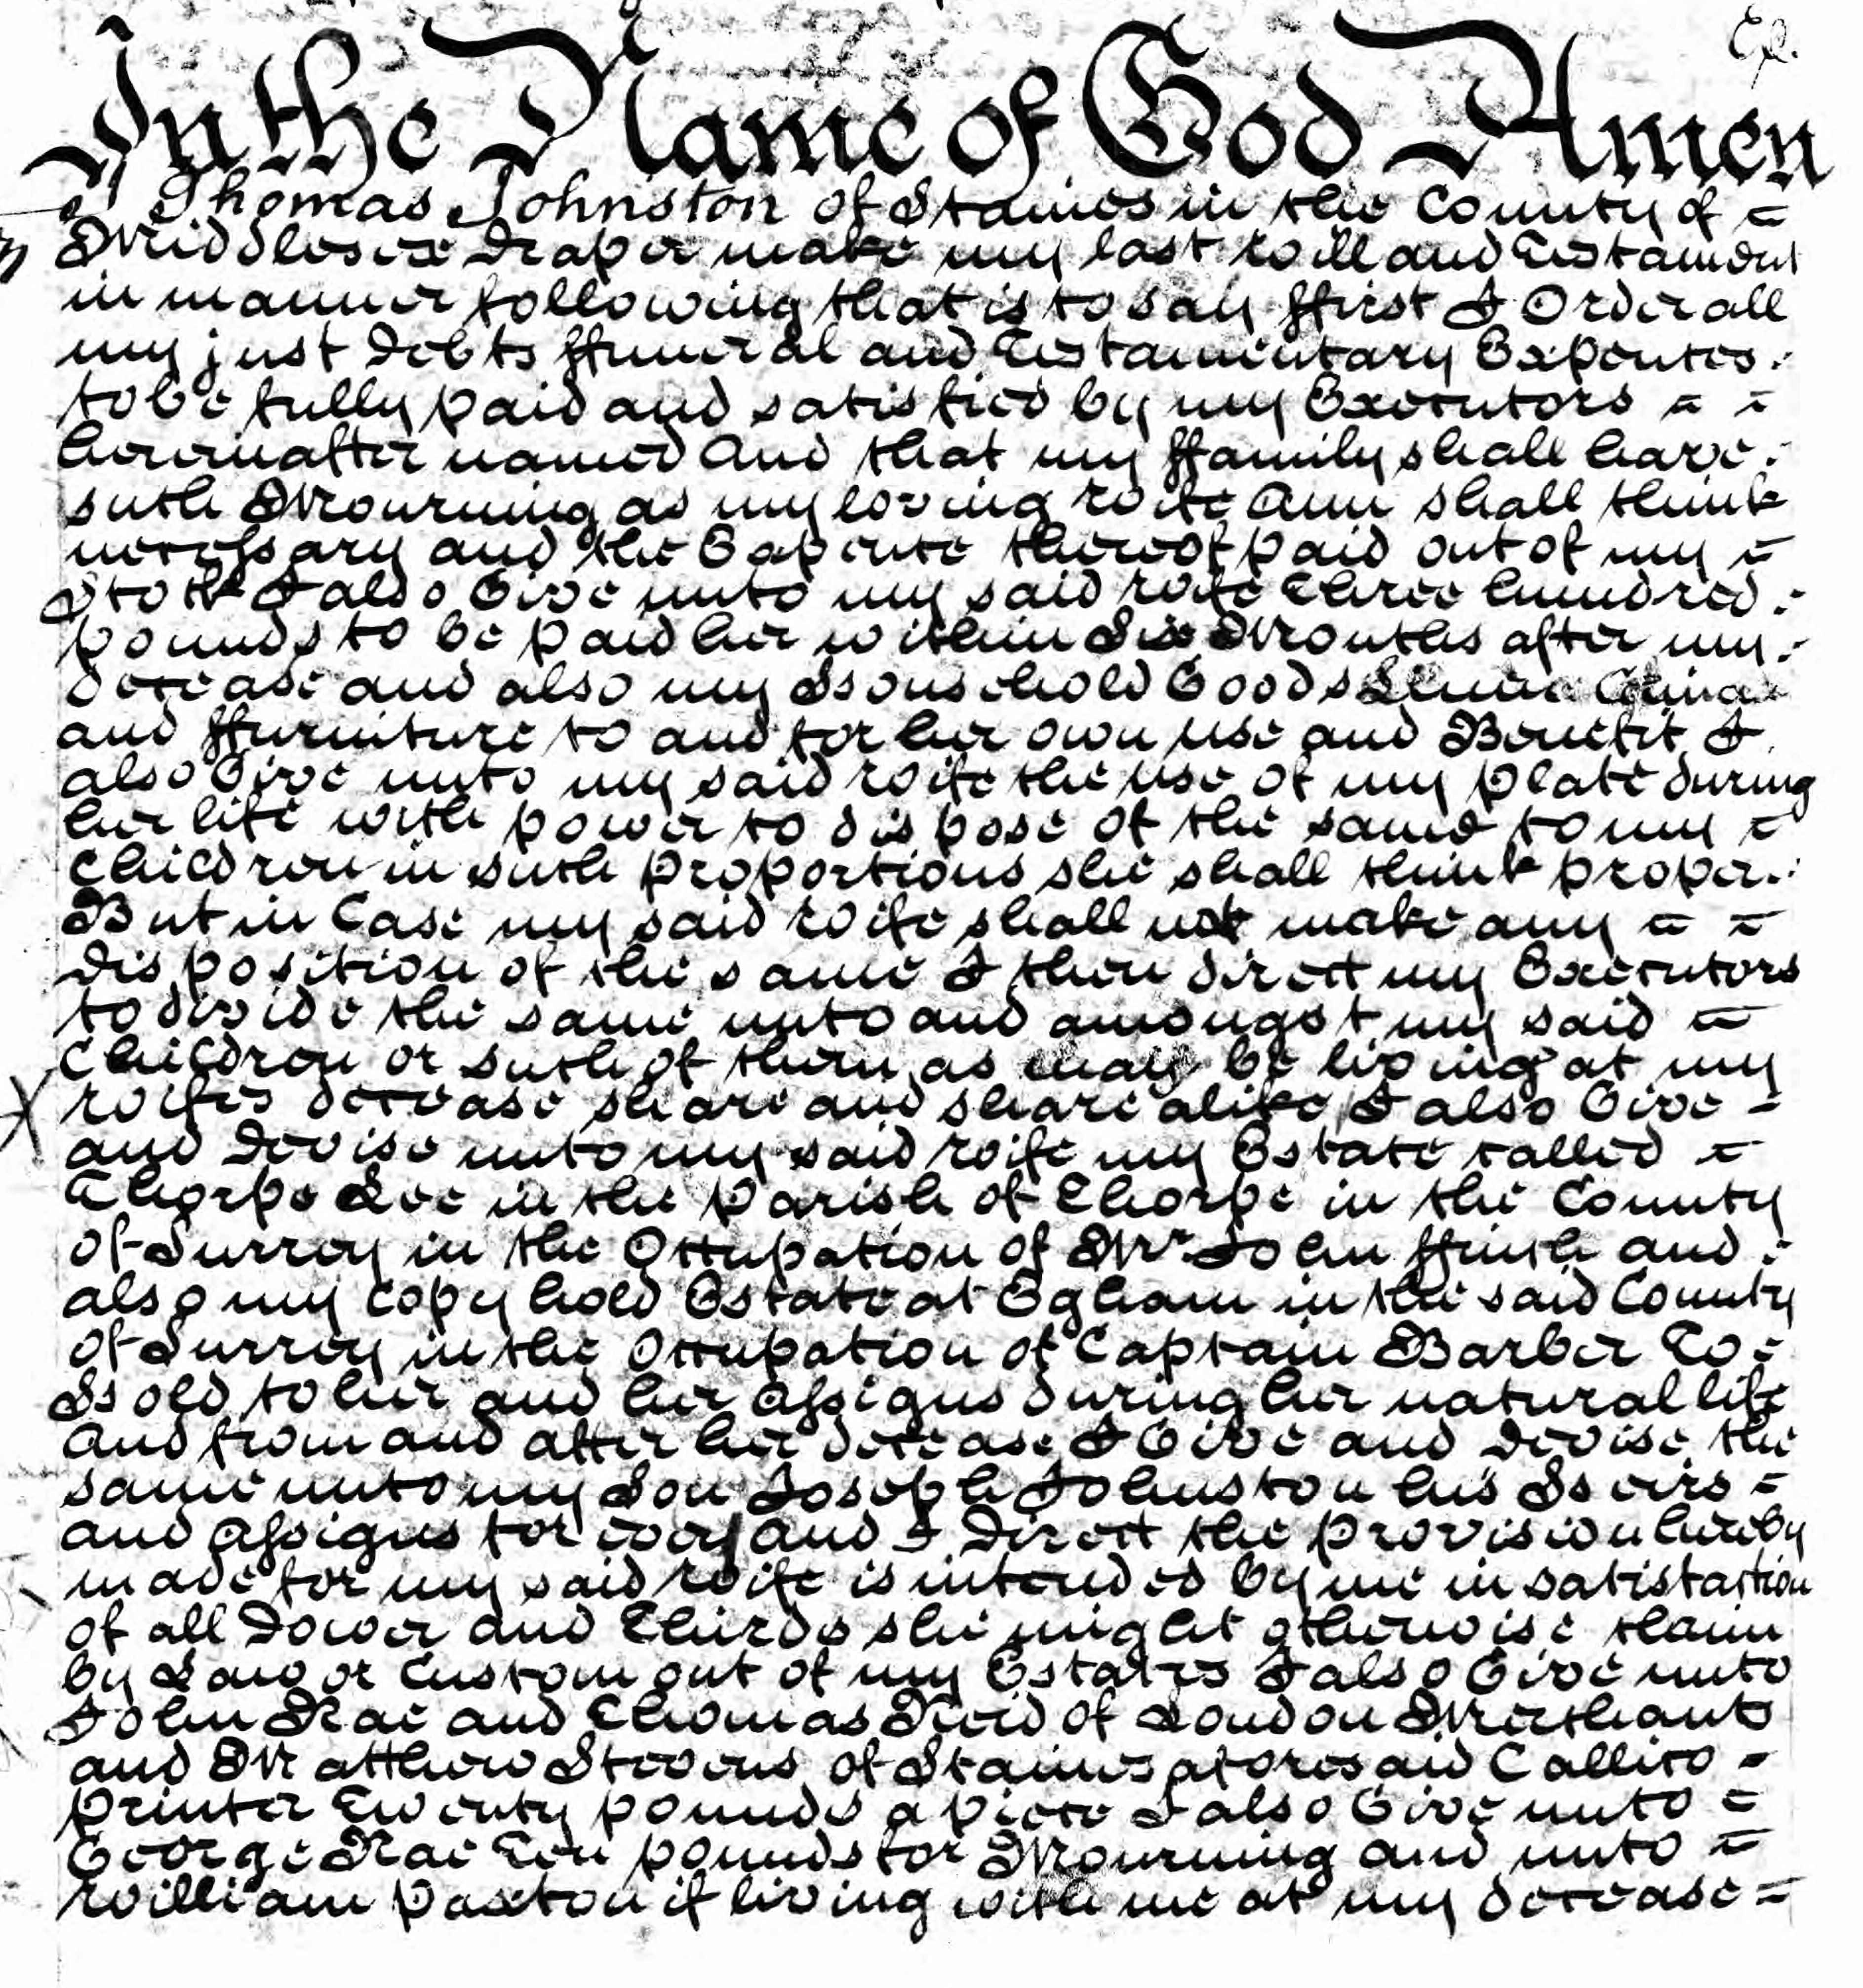 Ex.
In the Name of God Amen
I Thomas Johnston of Staines in the County of =
Middlesex Draper make my last Will and Testament
in manner following that is to say ffirst I Order all
my just Debts ffuneral and Testamentary Expences
to be fully paid and satisfied by my Executors = =
hereinafter named And that my ffamily shall have
such Mourning as my loving wife Ann shall think
necessary and the Expence thereof paid out of my =
Stock I also Give unto my said wife Three hundred
pounds to be paid her within Six Months after my
decease and also my Household Goods Linnen China
and ffurniture to and for her own use and Benefit I
also Give unto my said wife the use of my plate during
her life with power to dispose of the same to my =
Children in such proportions she shall think proper
But in Case my said wife shall not make any = =
Disposition of the same I then direct my Executors
to divide the same unto and amongst my said =
Children or such of them as may be living at my
wifes decease share and share alike I also Give =
and Devise unto my said wife my Estate called =
Thorpe Lee in the parish of Thorpe in the County
of Surrey in the Occupation of Mr. John ffinch and
also my copyhold Estate at Egham in the said County
of Surrey in the Occupation of Captain Barber To =
Hold to her and her Assigns during her natural life
And from and after her decease I Give and Devise the
same unto my Son Joseph Johnston his Heirs =
and Assigns for ever And I Direct the provision hereby
made for my said wife is intended by me in satisfaction
of all Dower and Thirds she might otherwise claim
by Law or Custom out of my Estates I also Give unto
John Rae and Thomas Reid of London Merchants
and Matthew Stevens of Staines aforesaid Callico =
printer Twenty pounds apiece I also Give unto =
George Rae Ten pounds for Mourning and unto =
William paxton if living with me at my decease =